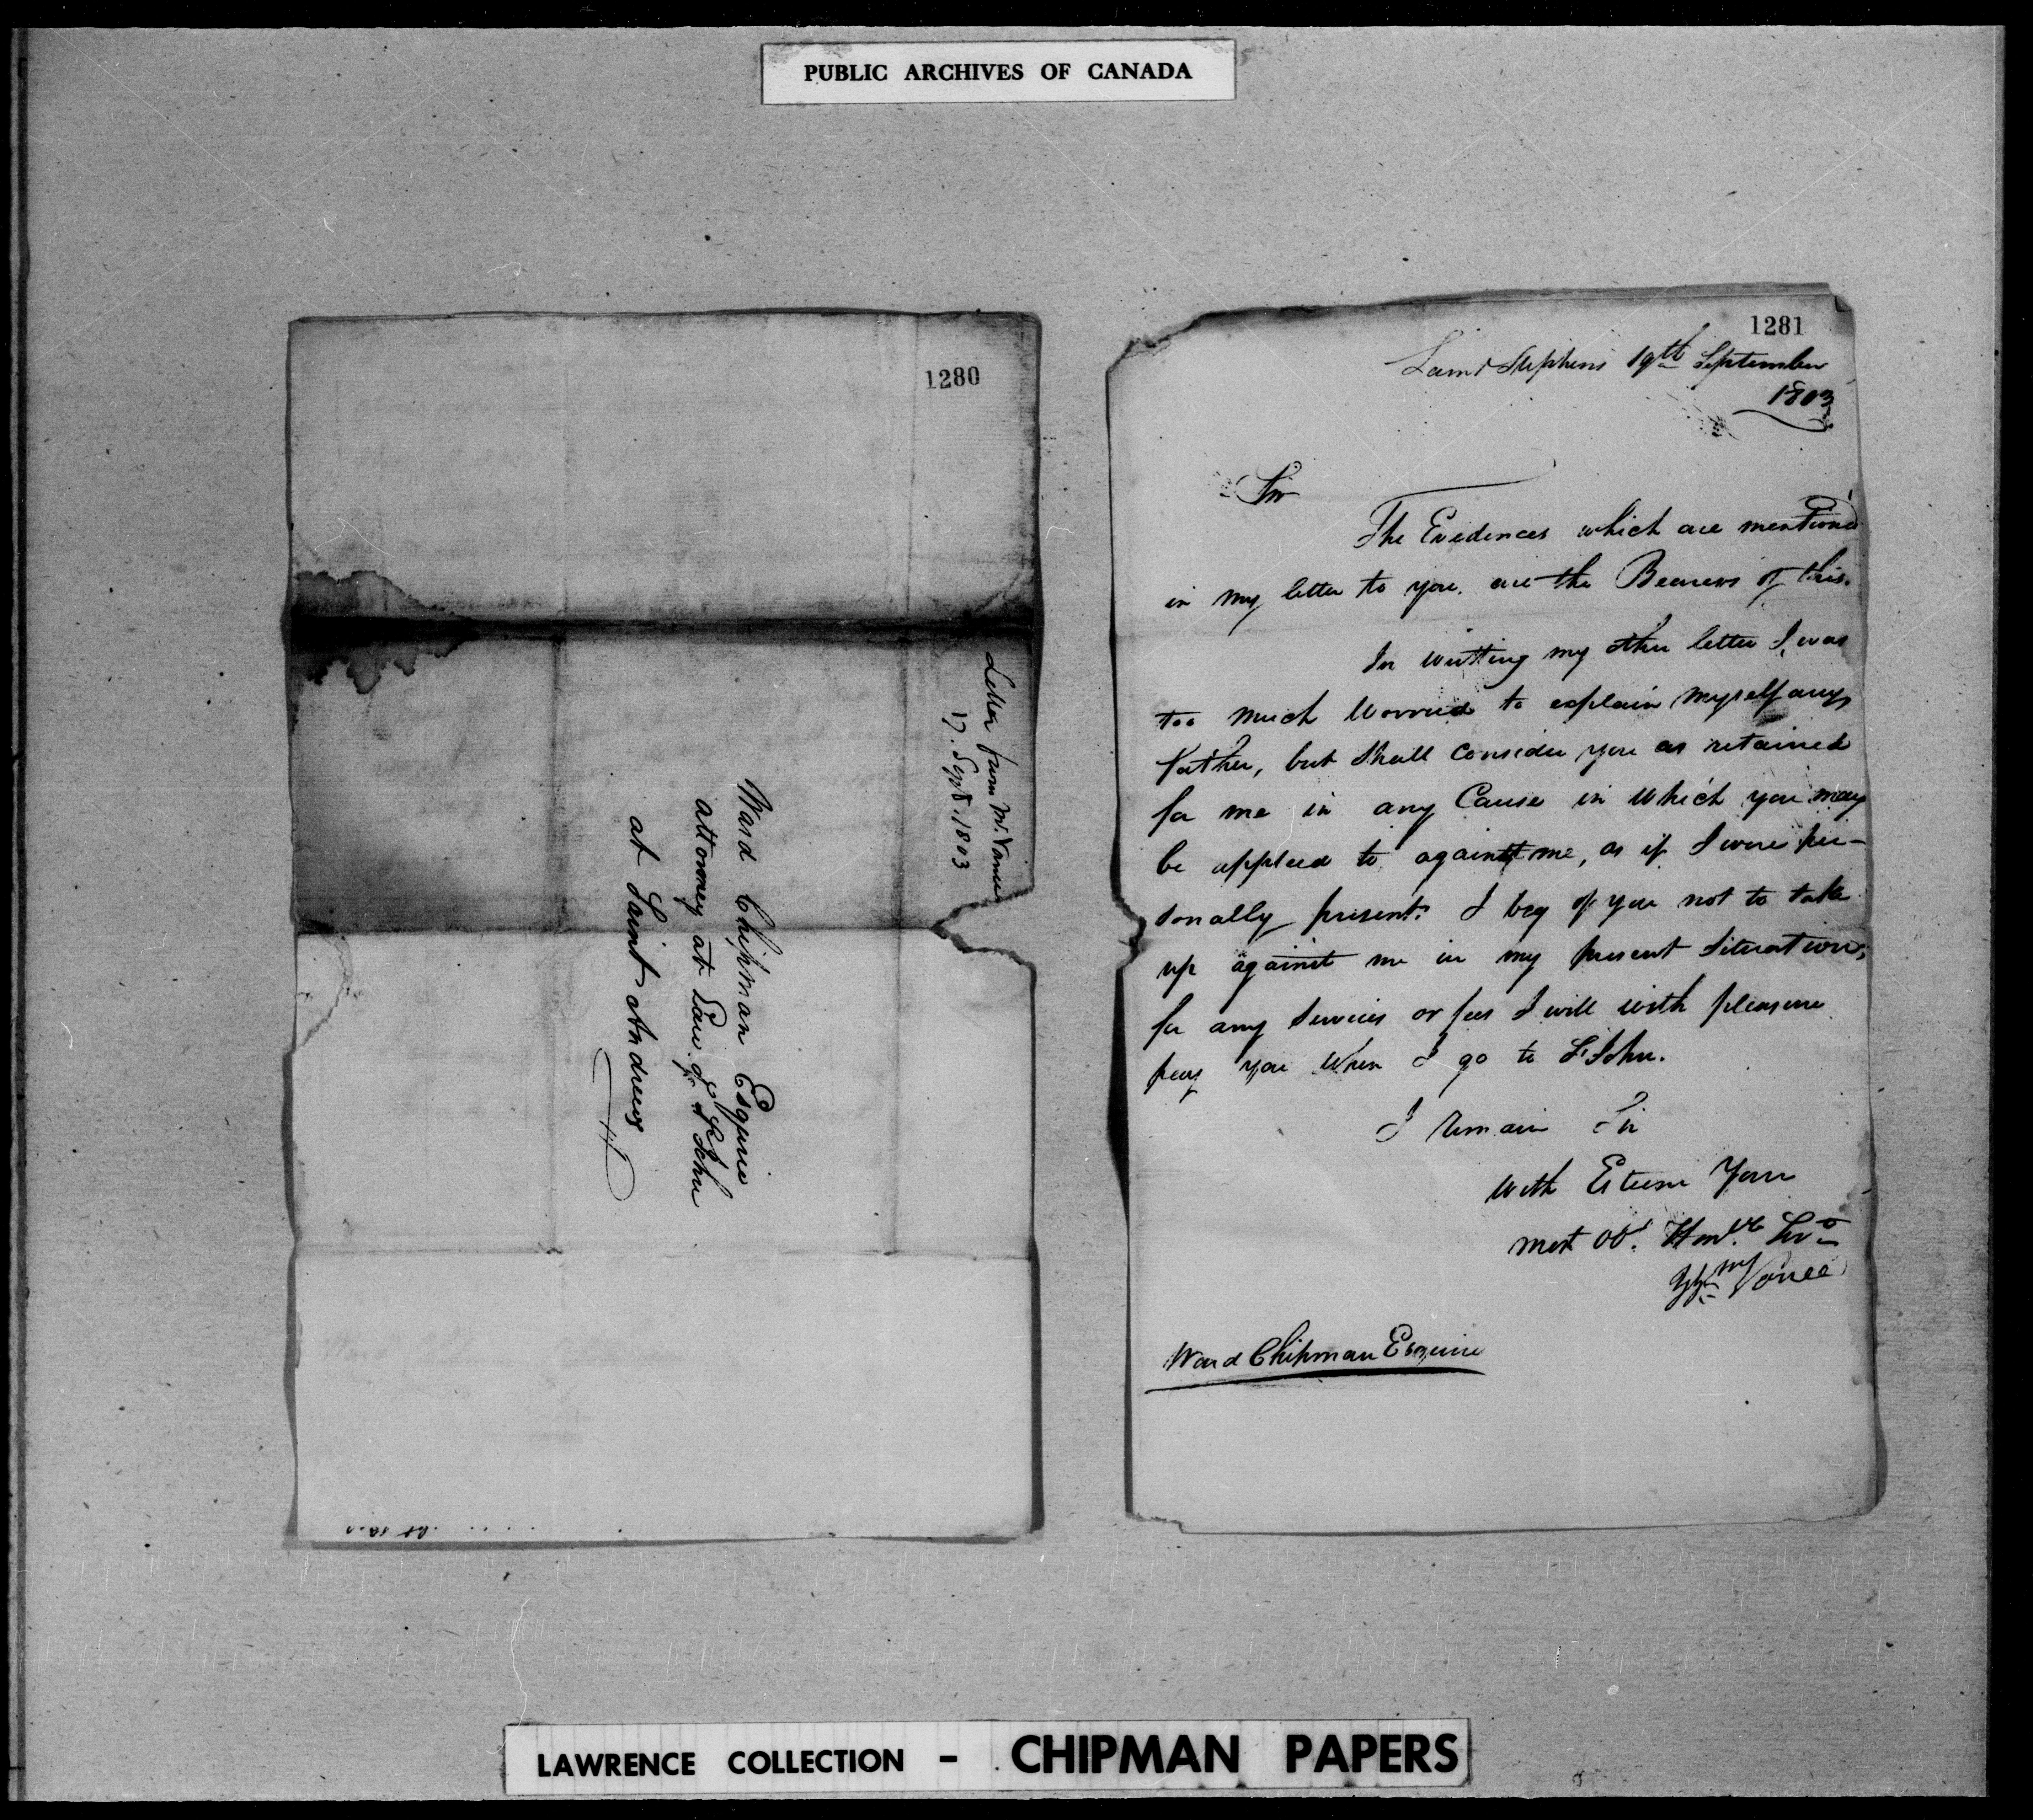 PUBLIC ARCHIVES OF CANADA
1280
Letter from Mr. Vance
17. Sept. 1803
Ward Chipman Esquire
attorney at Law of St John
at Saint Andrews
1281
Saint Stephens 19th September
1803
Sir
The Evidences which are mentioned
in my letter to you. are the Bearers of this.
In writting my other letter I was
too much Worried to explain myself any
further, but shall Consider you as retained
for me in any Cause in which you may
be applied to against me, as if I were per-
sonally present. I beg of you not to take
up against me in my present Situation,
for any Services or fees I will with pleasure
pay you when I go to St John.
I remain Sir
with Esteem Your
most Obt. Humble Servt
Wm Vance
Ward Chipman Esquire
LAWRENCE COLLECTION - CHIPMAN PAPERS